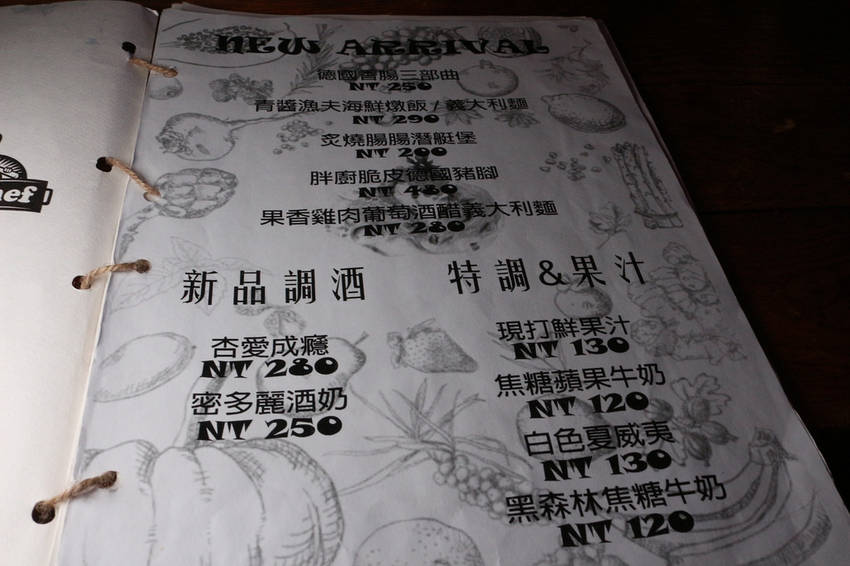 NEW ARRIVAL
德國香腸三部曲
NT 250
青醬漁夫海鮮燉飯/義大利麵
NT 290
炙燒腸腸潛艇堡
NT 200
胖廚脆皮德國豬腳
NT 480
果香雞肉葡萄酒醋義大利麵
NT 280
新品調酒
杏愛成癮
NT 280
密多麗酒奶
NT 250
特調&果汁
現打鮮果汁
NT 130
焦糖蘋果牛奶
NT 120
白色夏威夷
NT 130
黑森林焦糖牛奶
NT 120